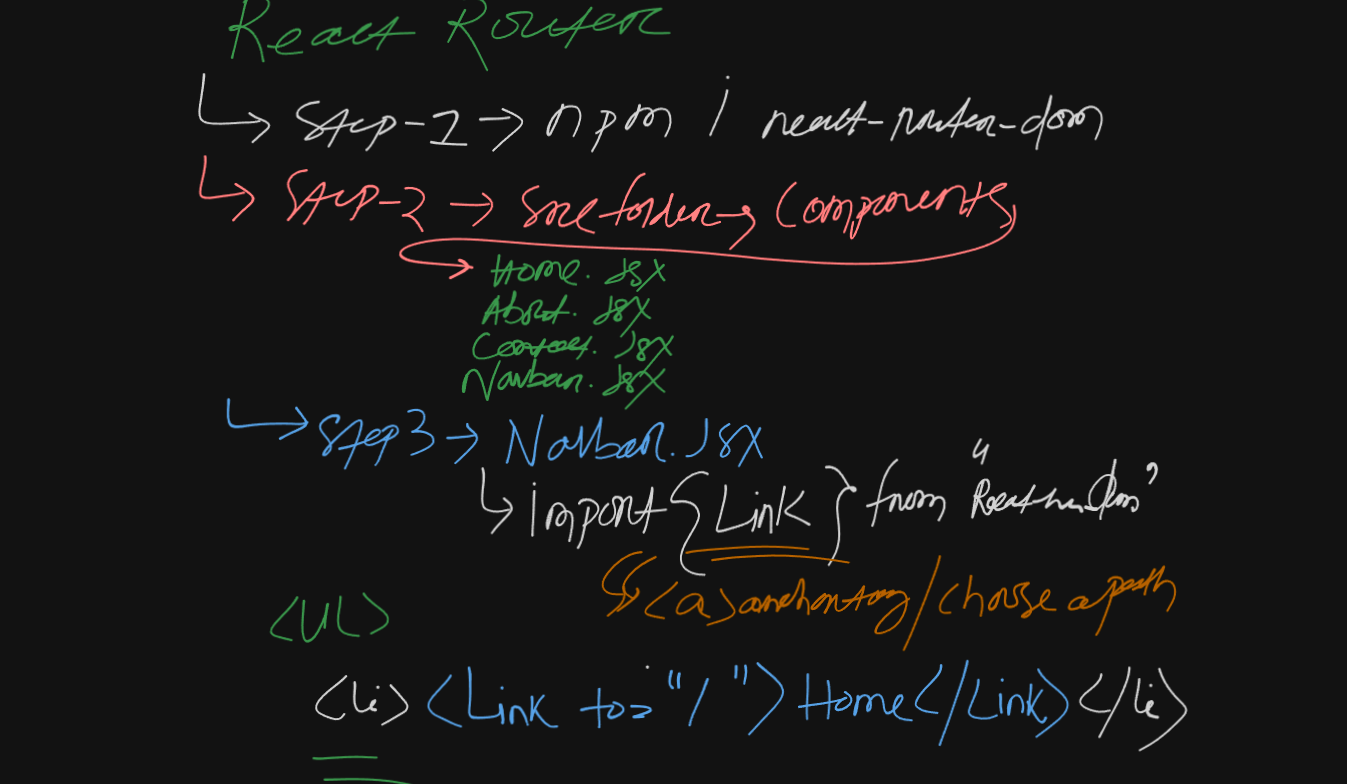 React Router
↳ Step-1 → npm i react-router-dom
↳ Step-2 → Src folder → Components
→ Home.jsx
About.jsx
Contact.jsx
Navbar.jsx
↳ Step 3 → Navbar.Jsx
↳ import {Link} from "React-r-dom"
<a> anchor tag / choose a path
<UL>
<li> <Link to="/"> Home </Link> </li>